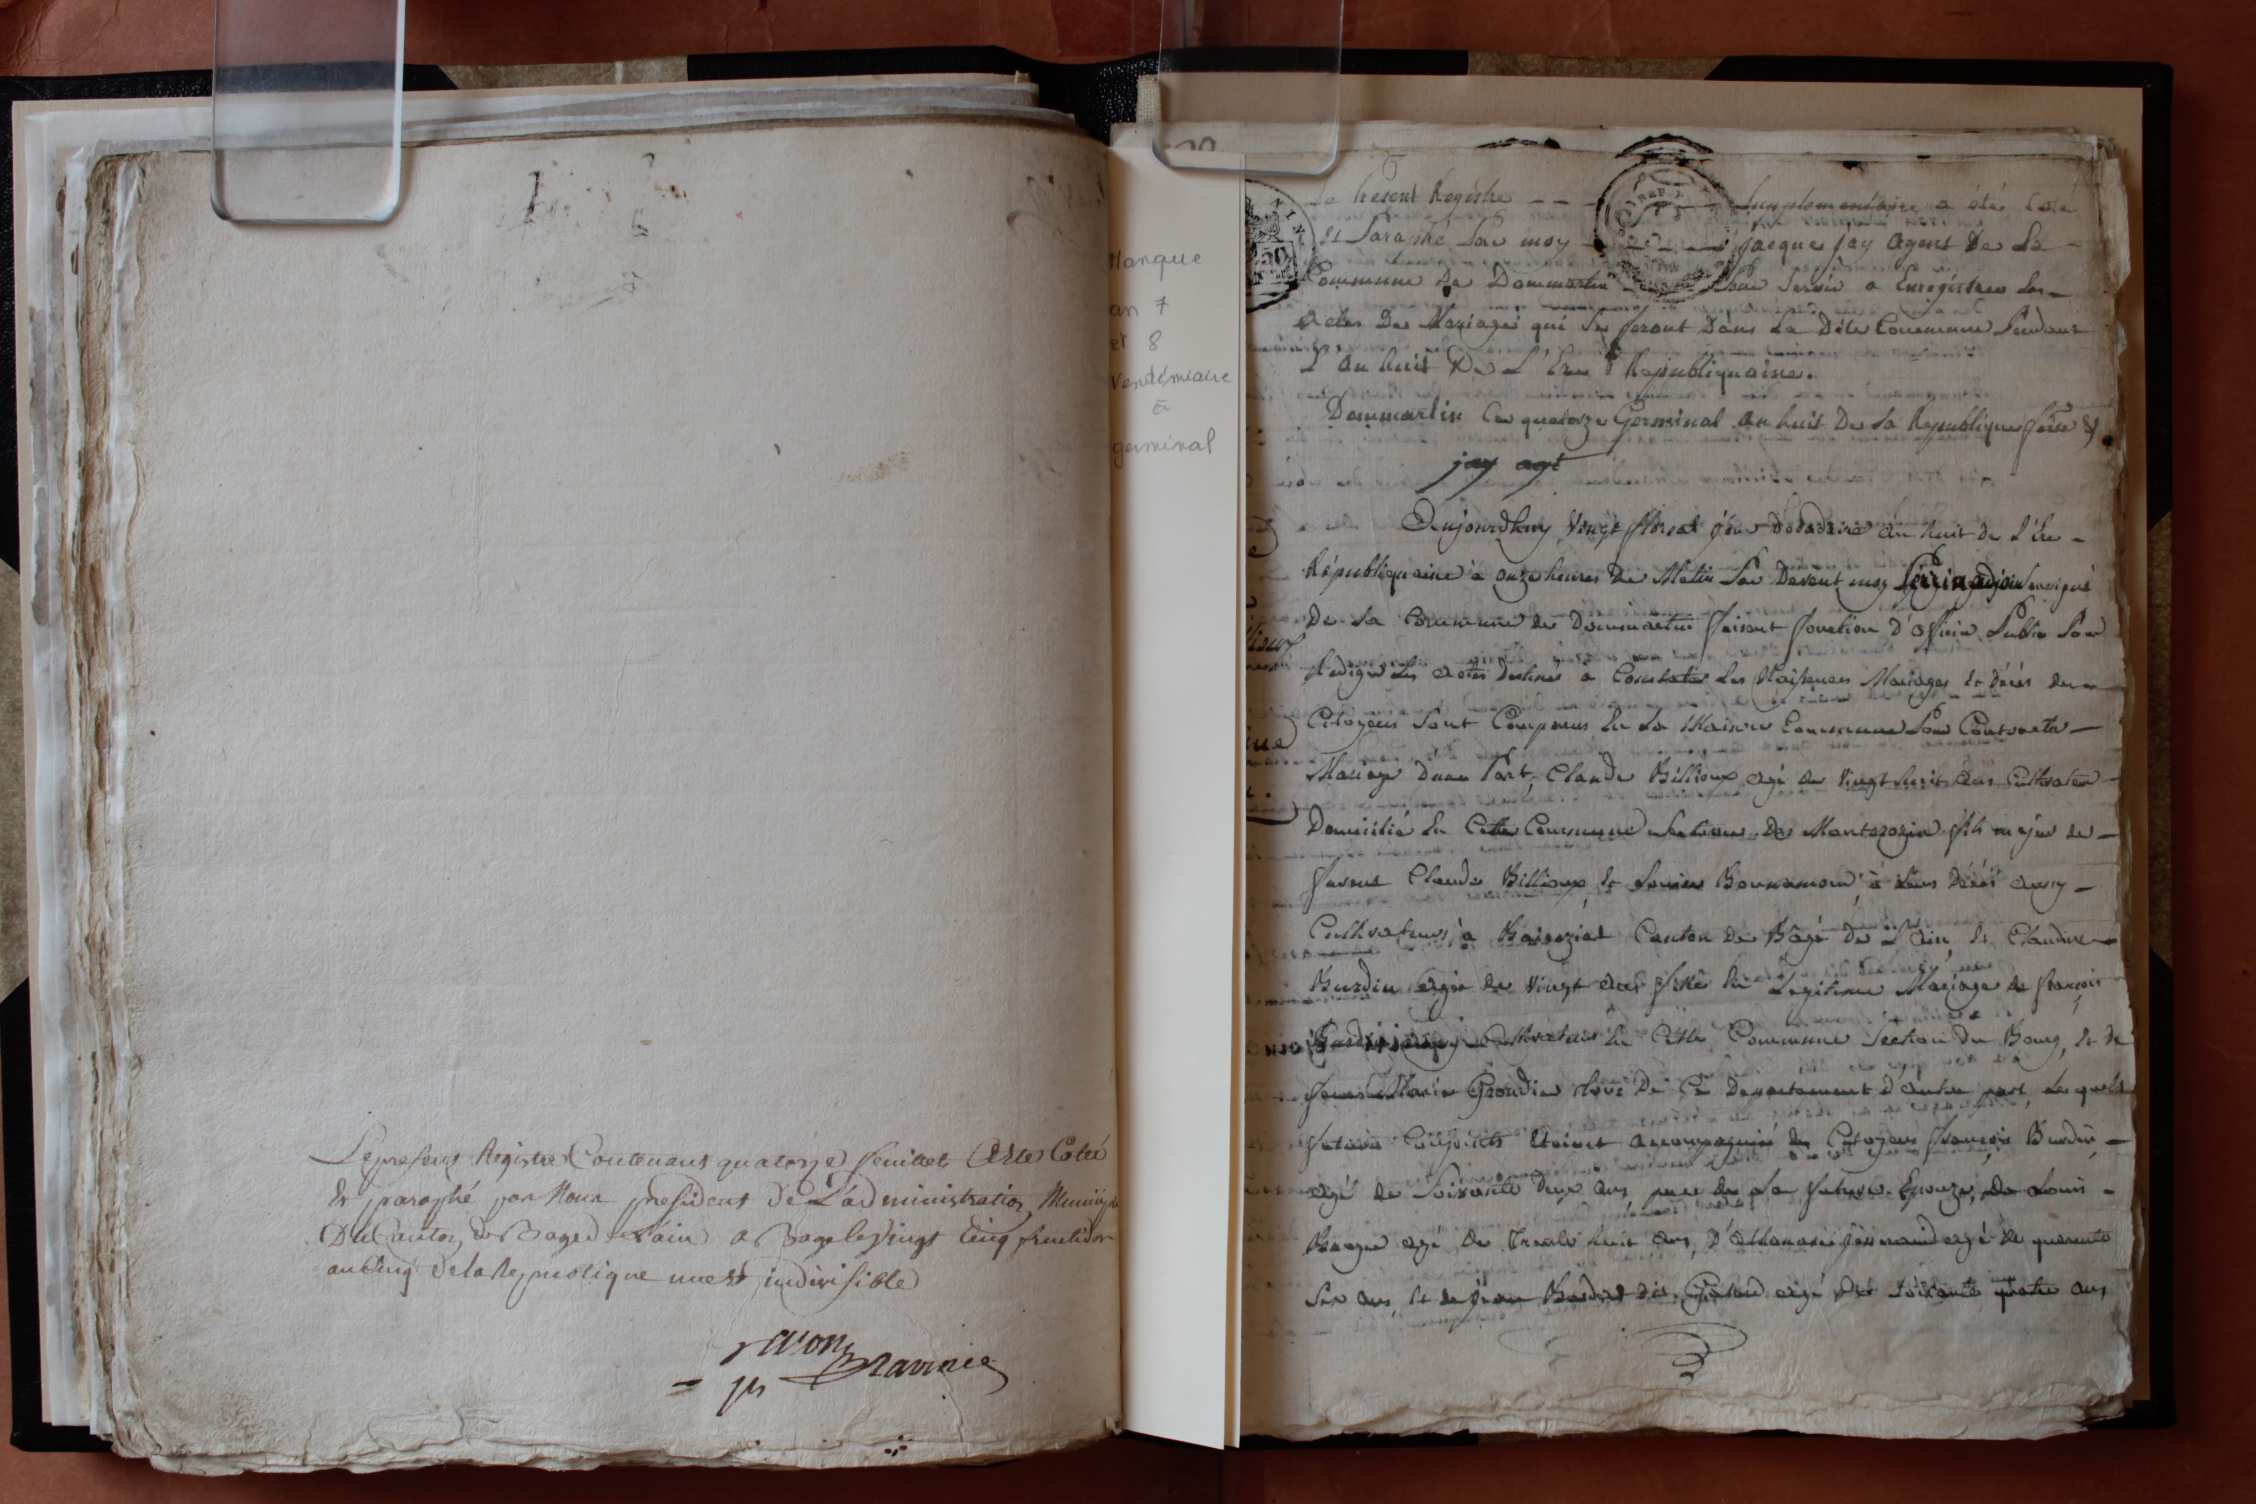 Le present Registre Contenant quatorze feuillet Aeste Coteé
Et paraphé par Nous president de L'administration Municip
Du Canton de Bagé d L'ain a Bagé le Vingt Cinq fructidor
an Cinq de la Republique une et indivisible
pt
Manque
an 7
et 8
Vendémiaire
à
germinal
Le Present Registre - - - Supplementaire a étés Coté
et Paraphé Par moy Jacque Jay Agent De La -
Commune De Dommartin Pour Servir a Enregistrer Les -
Actes Des Mariages qui Se feront Dans La Dite Commune Pendant
L'an huit De L'Ere Republiquaine.
Dommartin Ce quatorze Germinal an huit De La Republique
jay agt
Aujourdhuy Vingt floreal jour Decadaire an huit de L'Ere -
Républiquaine à onze heures De Matin Par Devant moy adjoint
De La Commune de Dommartin faisant fonction d'officier Public Pour
Rediger Les actes destinés a Constater Les Naissances Mariages et décés des
Citoyens Sont Comparus En La Maison Commune Pour Contracter -
Mariage D'une Part, Claude Billioux agé de Vingt huit ans Cultivateur
Domicilié En Cette Commune Section De Montezozin fils majeur de -
Claude Billioux et Louise Bonnamour à Leurs Décés aussy -
Cultivateurs à Baiseziat Canton De Bâgé De L'Ain et Claudine
Burdin agée de Vingt ans fille En Legitime Mariage de François
Cultivateur En Cette Commune Section Du Bourg, et de
Marie De Ce Departement D'autre part, Lesquels
futurs Conjoints Etoient accompagnés des Citoyens François Burdin -
agé de Soixante Deux ans, pere de La future Epouze, De Louis -
agé De Trente huit ans, D'athanase agé de quarante
Six ans, et de Jean dit agé De Soixante quatre ans,